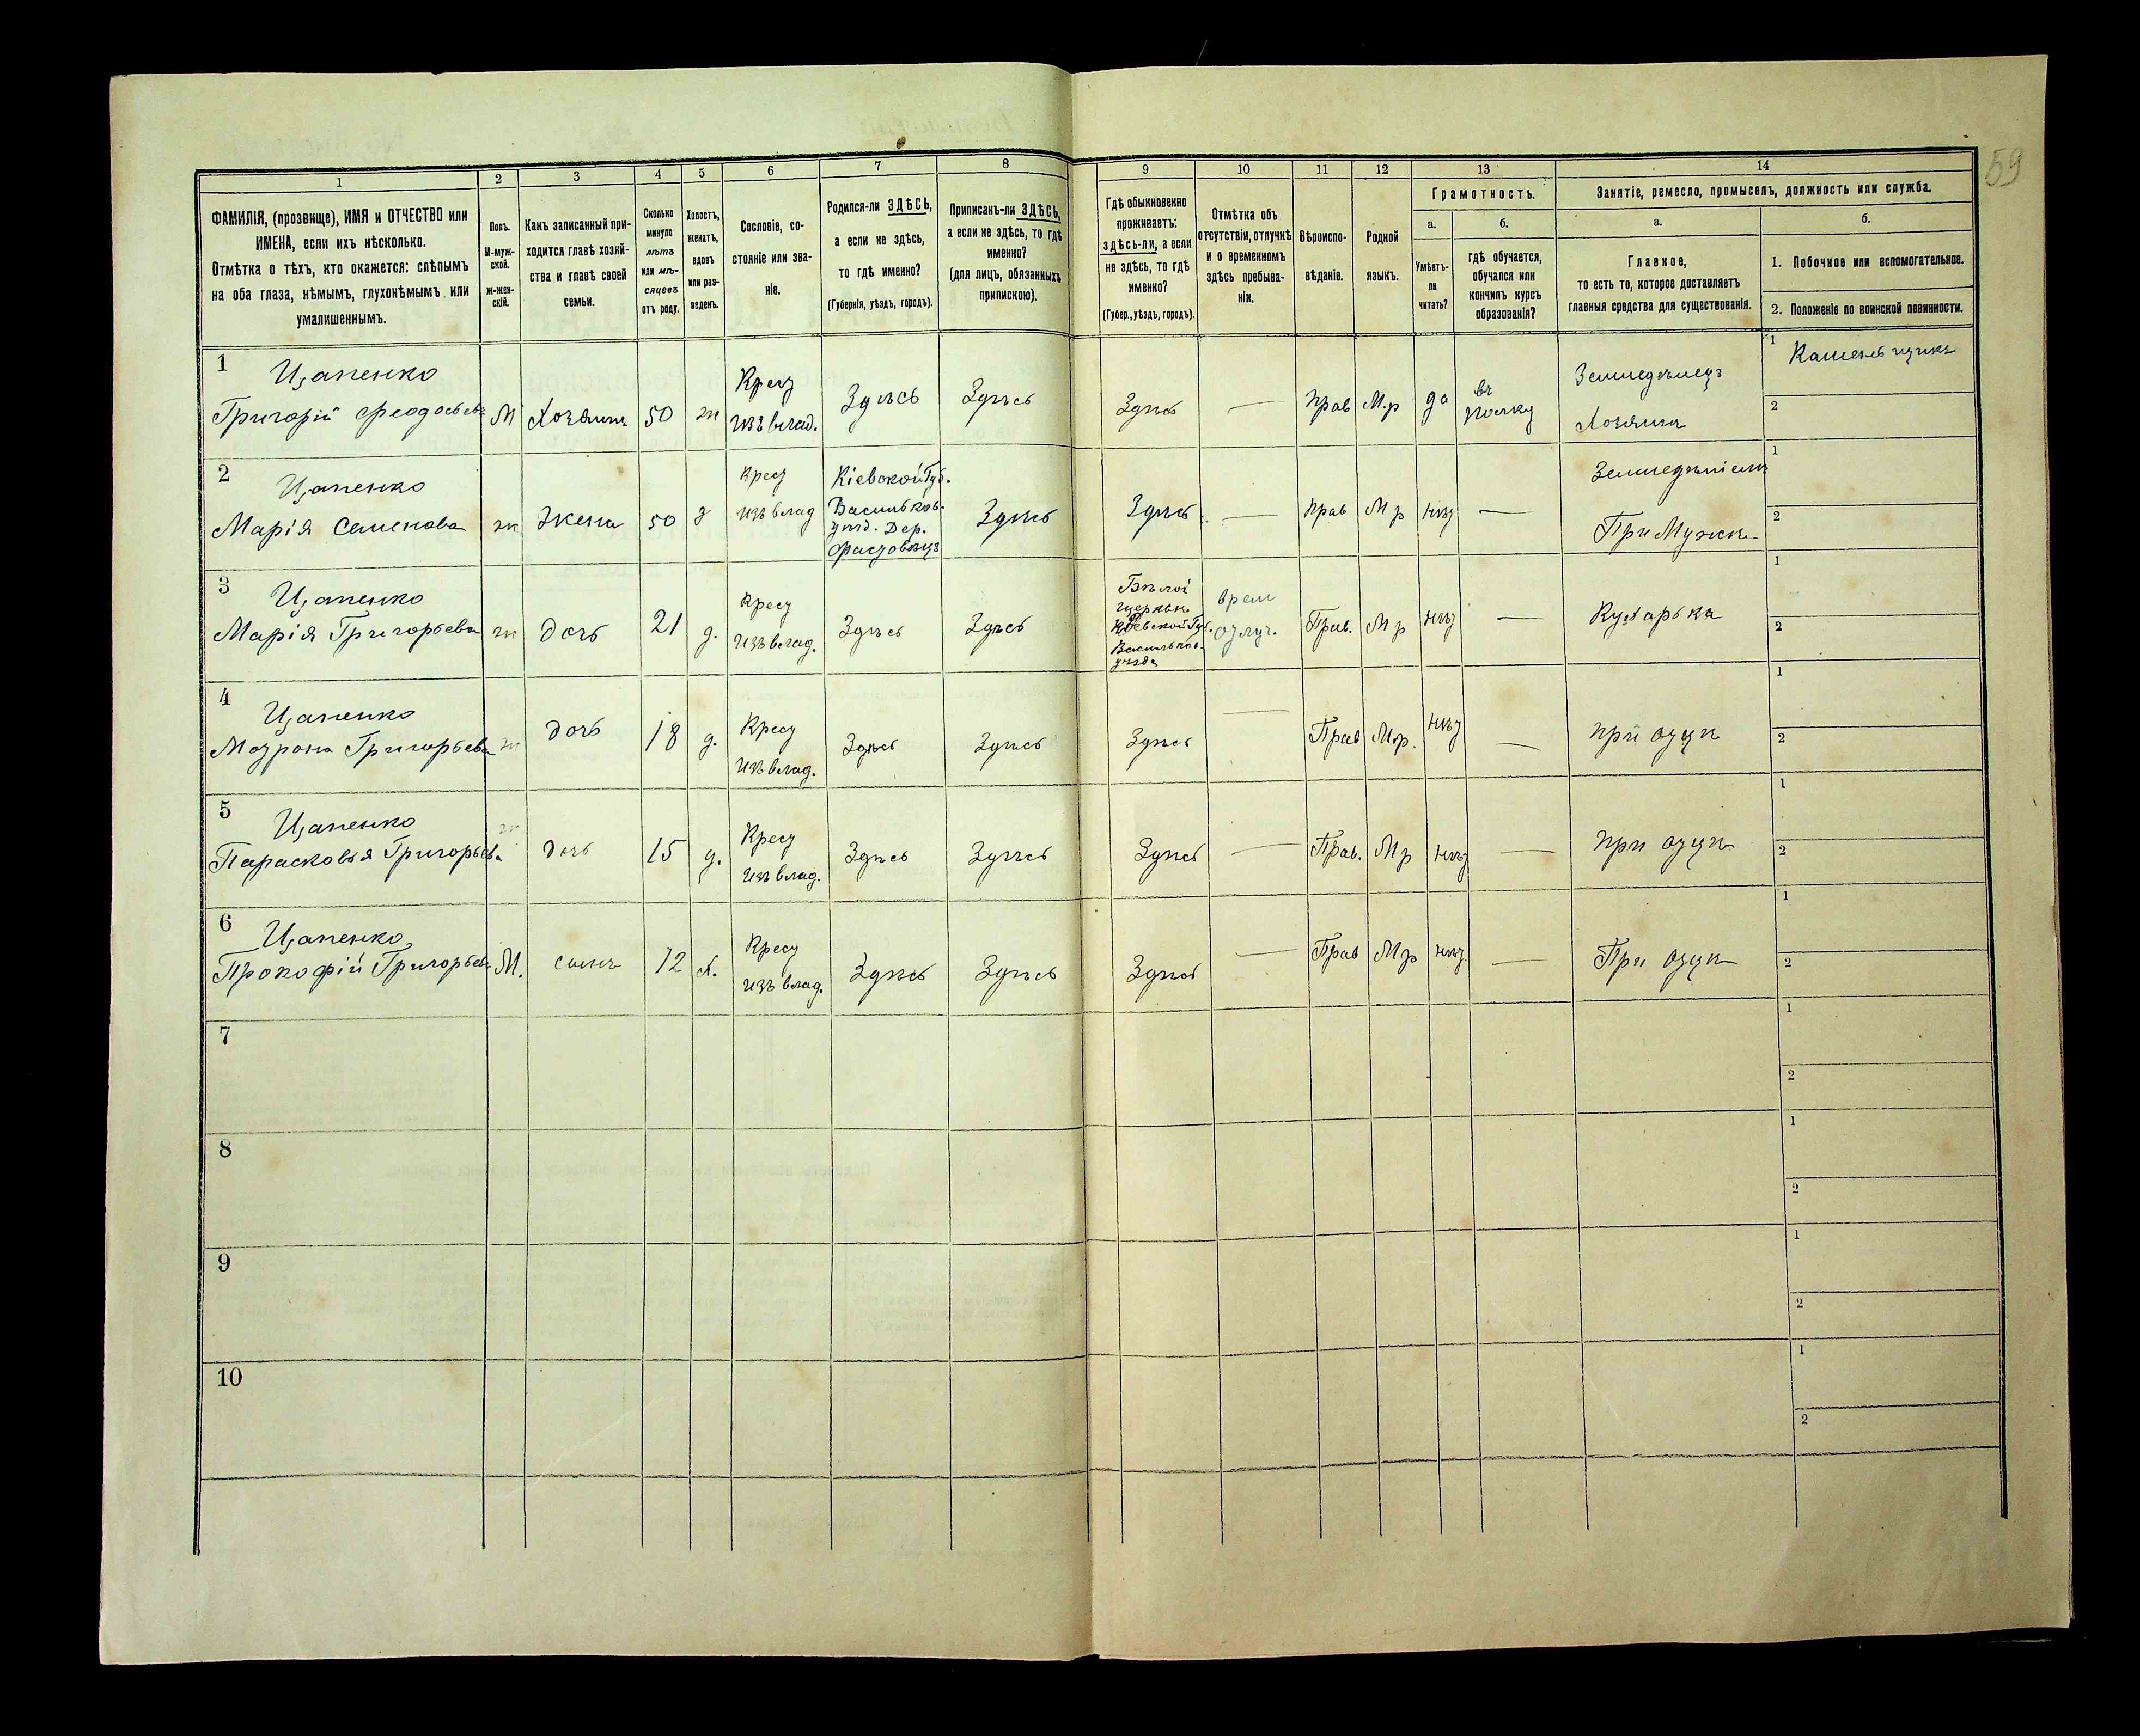 59
1 2 3 4 5 6 7 8 9 10 11 12 13 14
ФАМИЛІЯ, (прозвище), ИМЯ и ОТЧЕСТВО или
ИМЕНА, если ихъ нѣсколько.
Отмѣтка о тѣхъ, кто окажется: слѣпымъ
на оба глаза, нѣмымъ, глухонѣмымъ или
умалишеннымъ.
Полъ.
М-муж-
ской.
Ж-жен-
скій.
Какъ записанный при-
ходится главѣ хозяй-
ства и главѣ своей
семьи.
Сколько
минуло
лѣтъ
или мѣ-
сяцевъ
отъ роду.
Холостъ,
женатъ,
вдовъ
или раз-
веденъ.
Сословіе, со-
стояніе или зва-
ніе.
Родился-ли ЗДѢСЬ,
а если не здѣсь,
то гдѣ именно?
(Губернія, уѣздъ, городъ).
Приписанъ-ли ЗДѢСЬ,
а если не здѣсь, то гдѣ
именно?
(для лицъ, обязанныхъ
припискою).
Гдѣ обыкновенно
проживаетъ:
здѣсь-ли, а если
не здѣсь, то гдѣ
именно?
(Губер., уѣздъ, городъ).
Отмѣтка объ
отсутствіи, отлучкѣ
и о временномъ
здѣсь пребыва-
ніи.
Вѣроиспо-
вѣданіе.
Родной
языкъ.
Грамотность.
а.
Умѣетъ-
ли
читать?
б.
гдѣ обучается,
обучался или
кончилъ курсъ
образованія?
Занятіе, ремесло, промыселъ, должность или служба.
а.
Главное,
то есть то, которое доставляетъ
главныя средства для существованія.
б.
1. Побочное или вспомогательное.
2. Положеніе по воинской повинности.
1
Цапенко
Григорій Феодосьевъ
М
Хозяинъ
50
ж
Крест
изъ влад.
Здѣсь
Здѣсь
Здѣсь
—
Прав
М.р
да
въ
полку
Земледѣлецъ
Хозяинъ
1
Каменьщикъ
2
2
Цапенко
Марія Семенова
ж
Жена
50
з
Крест
изъ влад
Кіевской Губ.
Васильков.
уѣзд. Дер.
Фастовецъ
Здѣсь
Здѣсь
—
Прав
М р
нѣт
—
Земледѣліемъ
При Мужѣ
1
2
3
Цапенко
Марія Григорьева
ж
дочь
21
д.
Крест
изъ влад.
Здѣсь
Здѣсь
Бѣлой
Церкви
Кіевской Губ.
Васильков.
уѣзда
врем
отлуч.
Прав.
М р
нѣт
—
Кухарька
1
2
4
Цапенко
Мотрона Григорьева
ж
дочь
18
д.
Крест
изъ влад.
Здѣсь
Здѣсь
Здѣсь
—
Прав
М.р.
нѣт
—
при отцѣ
1
2
5
Цапенко
Парасковья Григорьева
ж
дочь
15
д.
Крест
изъ влад.
Здѣсь
Здѣсь
Здѣсь
—
Прав.
М р
нѣт
—
при отцѣ
1
2
6
Цапенко
Прокофій Григорьевъ
М.
сынъ
12
х.
Крест
изъ влад.
Здѣсь
Здѣсь
Здѣсь
—
Прав
М р
нѣт
—
При отцѣ
1
2
7
1
2
8
1
2
9
1
2
10
1
2